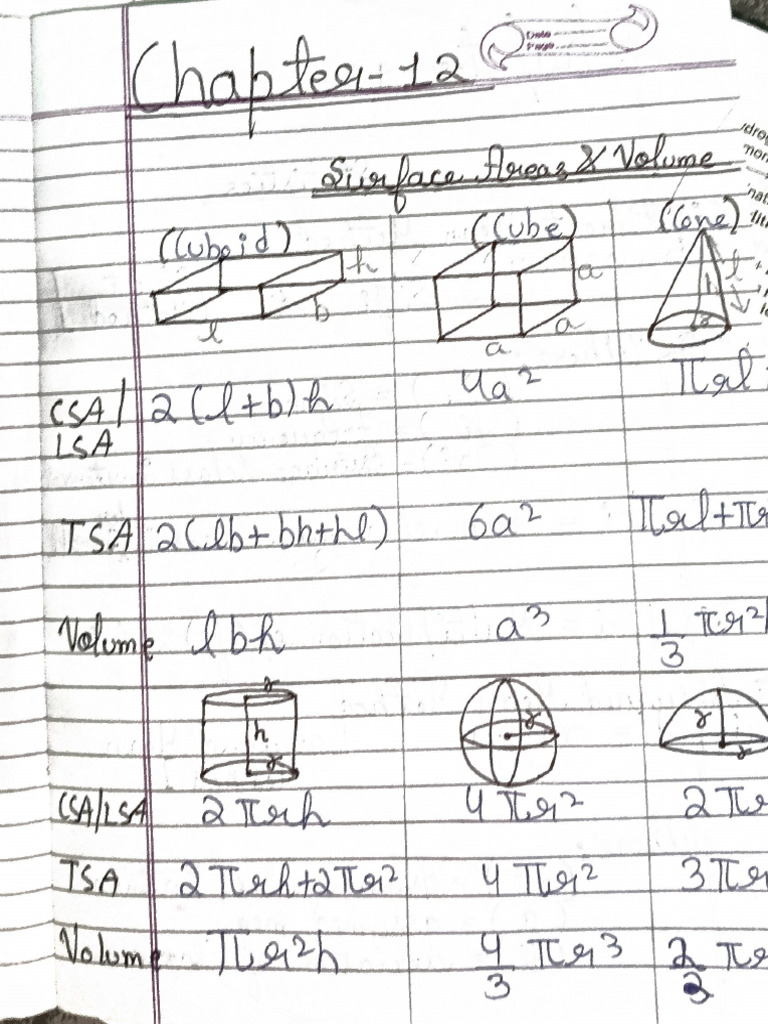 Chapter-12
Date
Page
Surface Areas & Volume
(Cuboid) (Cube) (Cone)
h a l
l b a a r
CSA/ 2(l+b)h 4a² πrl
LSA
TSA 2(lb+bh+hl) 6a² πrl+πr
Volume lbh a³ 1/3 πr²h
r h r r r r
CSA/LSA 2πrh 4πr² 2πr
TSA 2πrh+2πr² 4πr² 3πr
Volume πr²h 4/3 πr³ 2/3 πr